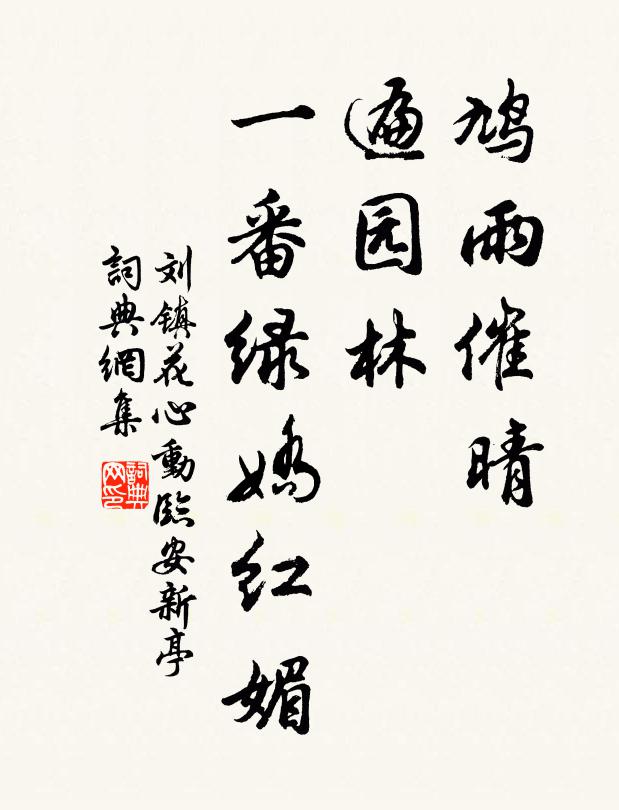 鸠雨催晴
遍园林
一番绿娇红媚
刘镇花心動臨安新亭
詞典網集
詞典网印